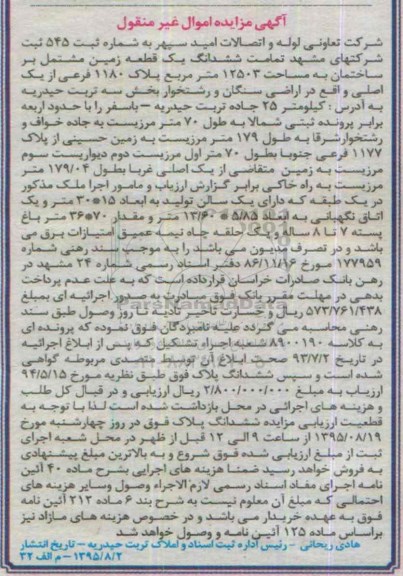 آگهی مزایده اموال غیر منقول
شرکت تعاونی لوله و اتصالات امید سپهر به شماره ثبت ۵۴۵ ثبت
شرکتهای مشهد تمامت ششدانگ یک قطعه زمین مشتمل بر
ساختمان به مساحت ۱۲۵۰۳ متر مربع پلاک ۱۱۸۰ فرعی از یک
اصلی واقع در اراضی سنگان و رشتخوار بخش سه تربت حیدریه
به آدرس : کیلومتر ۲۵ جاده تربت حیدریه – باسفر را با حدود اربعه
برابر پرونده ثبتی شمالا به طول ۷۰ متر مرزیست به جاده خواف و
رشتخوار شرقا به طول ۱۷۹ متر مرزیست به زمین حسینی از پلاک
۱۱۷۷ فرعی جنوبا بطول ۷۰ متر اول مرزیست دوم دیواریست سوم
مرزیست به زمین متقاضی از یک اصلی غربا بطول ۱۷۹/۰۴ متر
مرزیست به راه خاکی برابر گزارش ارزیاب و مامور اجرا ملک مذکور
در یک طبقه که دارای یک سالن تولید به ابعاد ۱۵*۳۰ متر و یک
اتاق نگهبانی به ابعاد ۵/۸۵ * ۱۳/۶۰ متر و مقدار ۷۰*۳۶ متر باغ
پسته ۷ تا ۸ ساله و یک حلقه چاه نیمه عمیق امتیازات برق می
باشد و در تصرف مدیون می باشد را به موجب سند رهنی شماره
۱۷۷۹۵۹ مورخ ۸۶/۱۱/۹۶ دفتر اسناد رسمی شماره ۲۴ مشهد در
رهن بانک صادرات خراسان قرارداده است که به علت عدم پرداخت
بدهی در مهلت مقرر بانک فوق مبادرت به صدور اجرائیه ای بمبلغ
۵۷۳/۷۶۱/۴۳۸ ریال و خسارت تاخیر تادیه تا روز وصول طبق سند
رهنی محاسبه می گردد علیه نامبردگان فوق نموده که پرونده ای
به کلاسه ۸۹۰۰۱۹۰ شعبه اجراء تشکیل که پس از ابلاغ اجرائیه
در تاریخ ۹۳/۷/۲ صحت ابلاغ آن توسط متصدی مربوطه گواهی
شده است و سپس ششدانگ پلاک فوق طبق نظریه مورخ ۹۴/۵/۱۵
ارزیاب به مبلغ ۲/۸۰۰/۰۰۰/۰۰۰ ریال ارزیابی و در قبال کل طلب
و هزینه های اجرائی در محل بازداشت شده است لذا با توجه به
قطعیت ارزیابی مزایده ششدانگ پلاک فوق در روز چهارشنبه مورخ
۱۳۹۵/۰۸/۱۹ از ساعت ۹ الی ۱۲ قبل از ظهر در محل شعبه اجرای
ثبت از مبلغ ارزیابی شده فوق شروع و به بالاترین مبلغ پیشنهادی
به فروش خواهد رسید ضمنا هزینه های اجرایی بشرح ماده ۴۰ آئین
نامه اجرای مفاد اسناد رسمی لازم الاجراء وصول وسایر هزینه های
احتمالی که مبلغ آن معلوم نیست به شرح بند ۶ ماده ۲۱۲ آئین نامه
فوق به عهده خریدار می باشد و در خصوص هزینه های مازاد نیز
براساس ماده ۱۲۵ آئین نامه و وصول خواهد شد
هادی ریحانی – رئیس اداره ثبت اسناد و املاک تربت حیدریه – تاریخ انتشار
۱۳۹۵/۸/۲ – م الف ۳۲